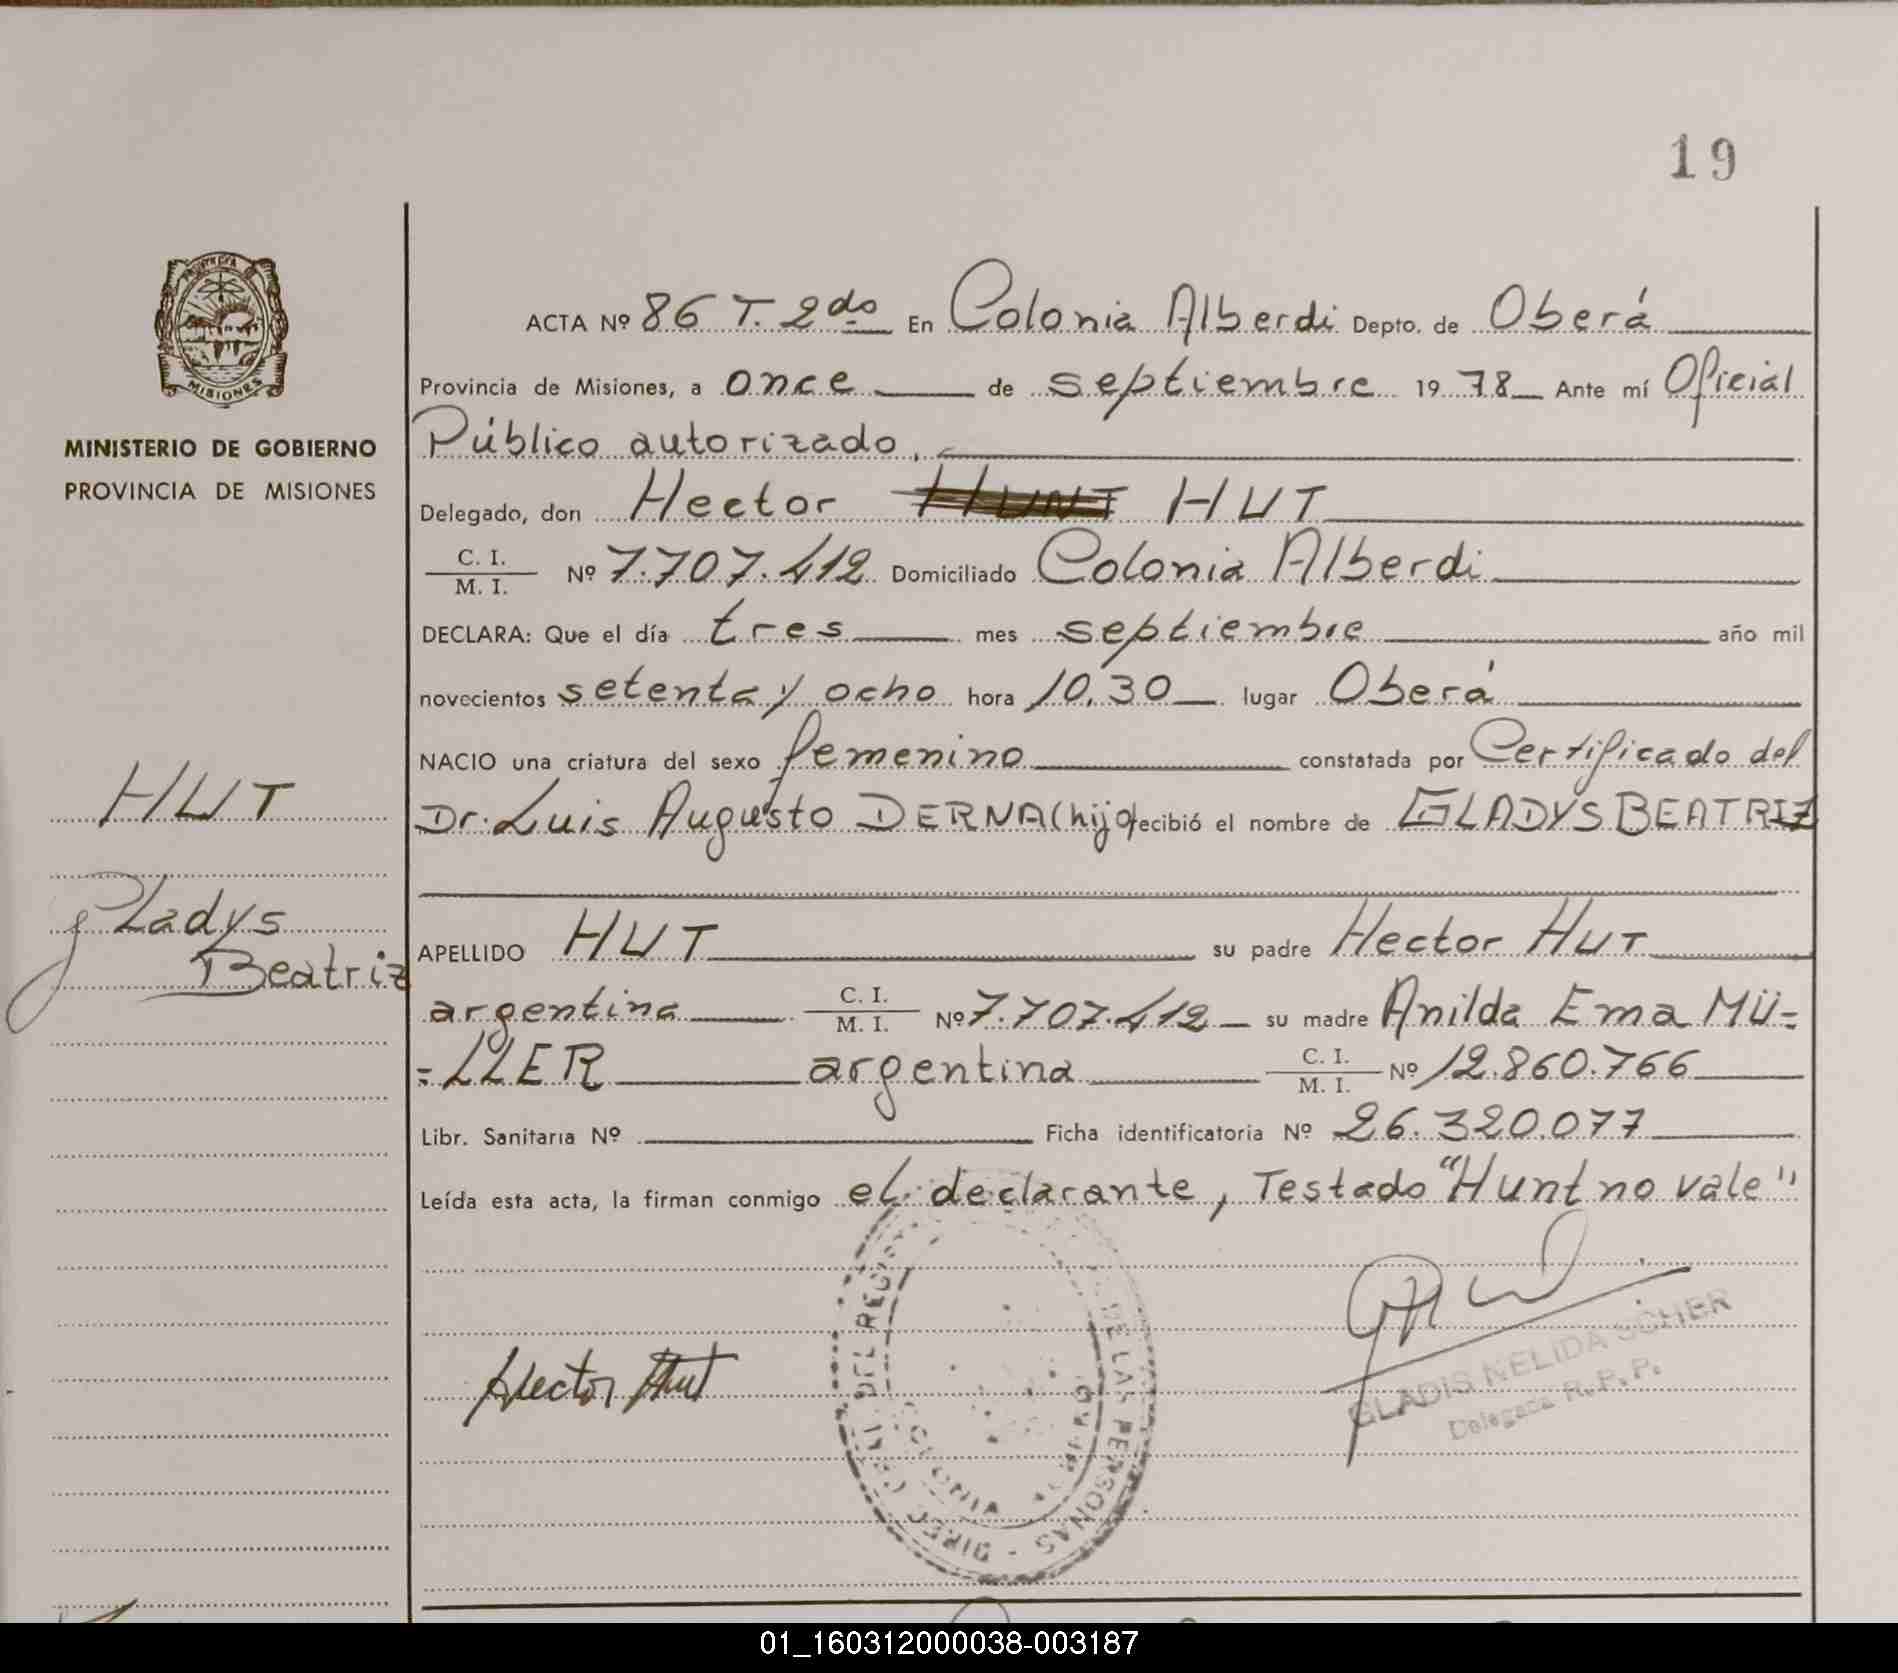 19
MISIONES
MINISTERIO DE GOBIERNO
PROVINCIA DE MISIONES
HUT
Gladys
Beatriz
ACTA Nº 86 T. 2do En Colonia Alberdi Depto. de Oberá
Provincia de Misiones, a once de septiembre 1978 Ante mí Oficial
Público autorizado,
Delegado, don Hector HUNT HUT
C. I.
M. I. Nº 7.707.412 Domiciliado Colonia Alberdi
DECLARA: Que el día tres mes septiembre año mil
novecientos setenta y ocho hora 10,30 lugar Oberá
NACIO una criatura del sexo femenino constatada por Certificado del
Dr. Luis Augusto DERNA (hijo) recibió el nombre de GLADYS BEATRIZ
APELLIDO HUT su padre Hector HUT
argentina C. I.
M. I. Nº 7.707.412 su madre Anilda Ema MÜ=
=LLER argentina C. I.
M. I. Nº 12.860.766
Libr. Sanitaria Nº Ficha identificatoria Nº 26.320.077
Leída esta acta, la firman conmigo el declarante, Testado "Hunt no vale"
Hector Hut
DE LAS PERSONAS - DIREC. GRAL. DEL REG.
COLONIA ALBERDI
GLADIS NELIDA SCHER
Delegada R. P. P.
01_160312000038-003187